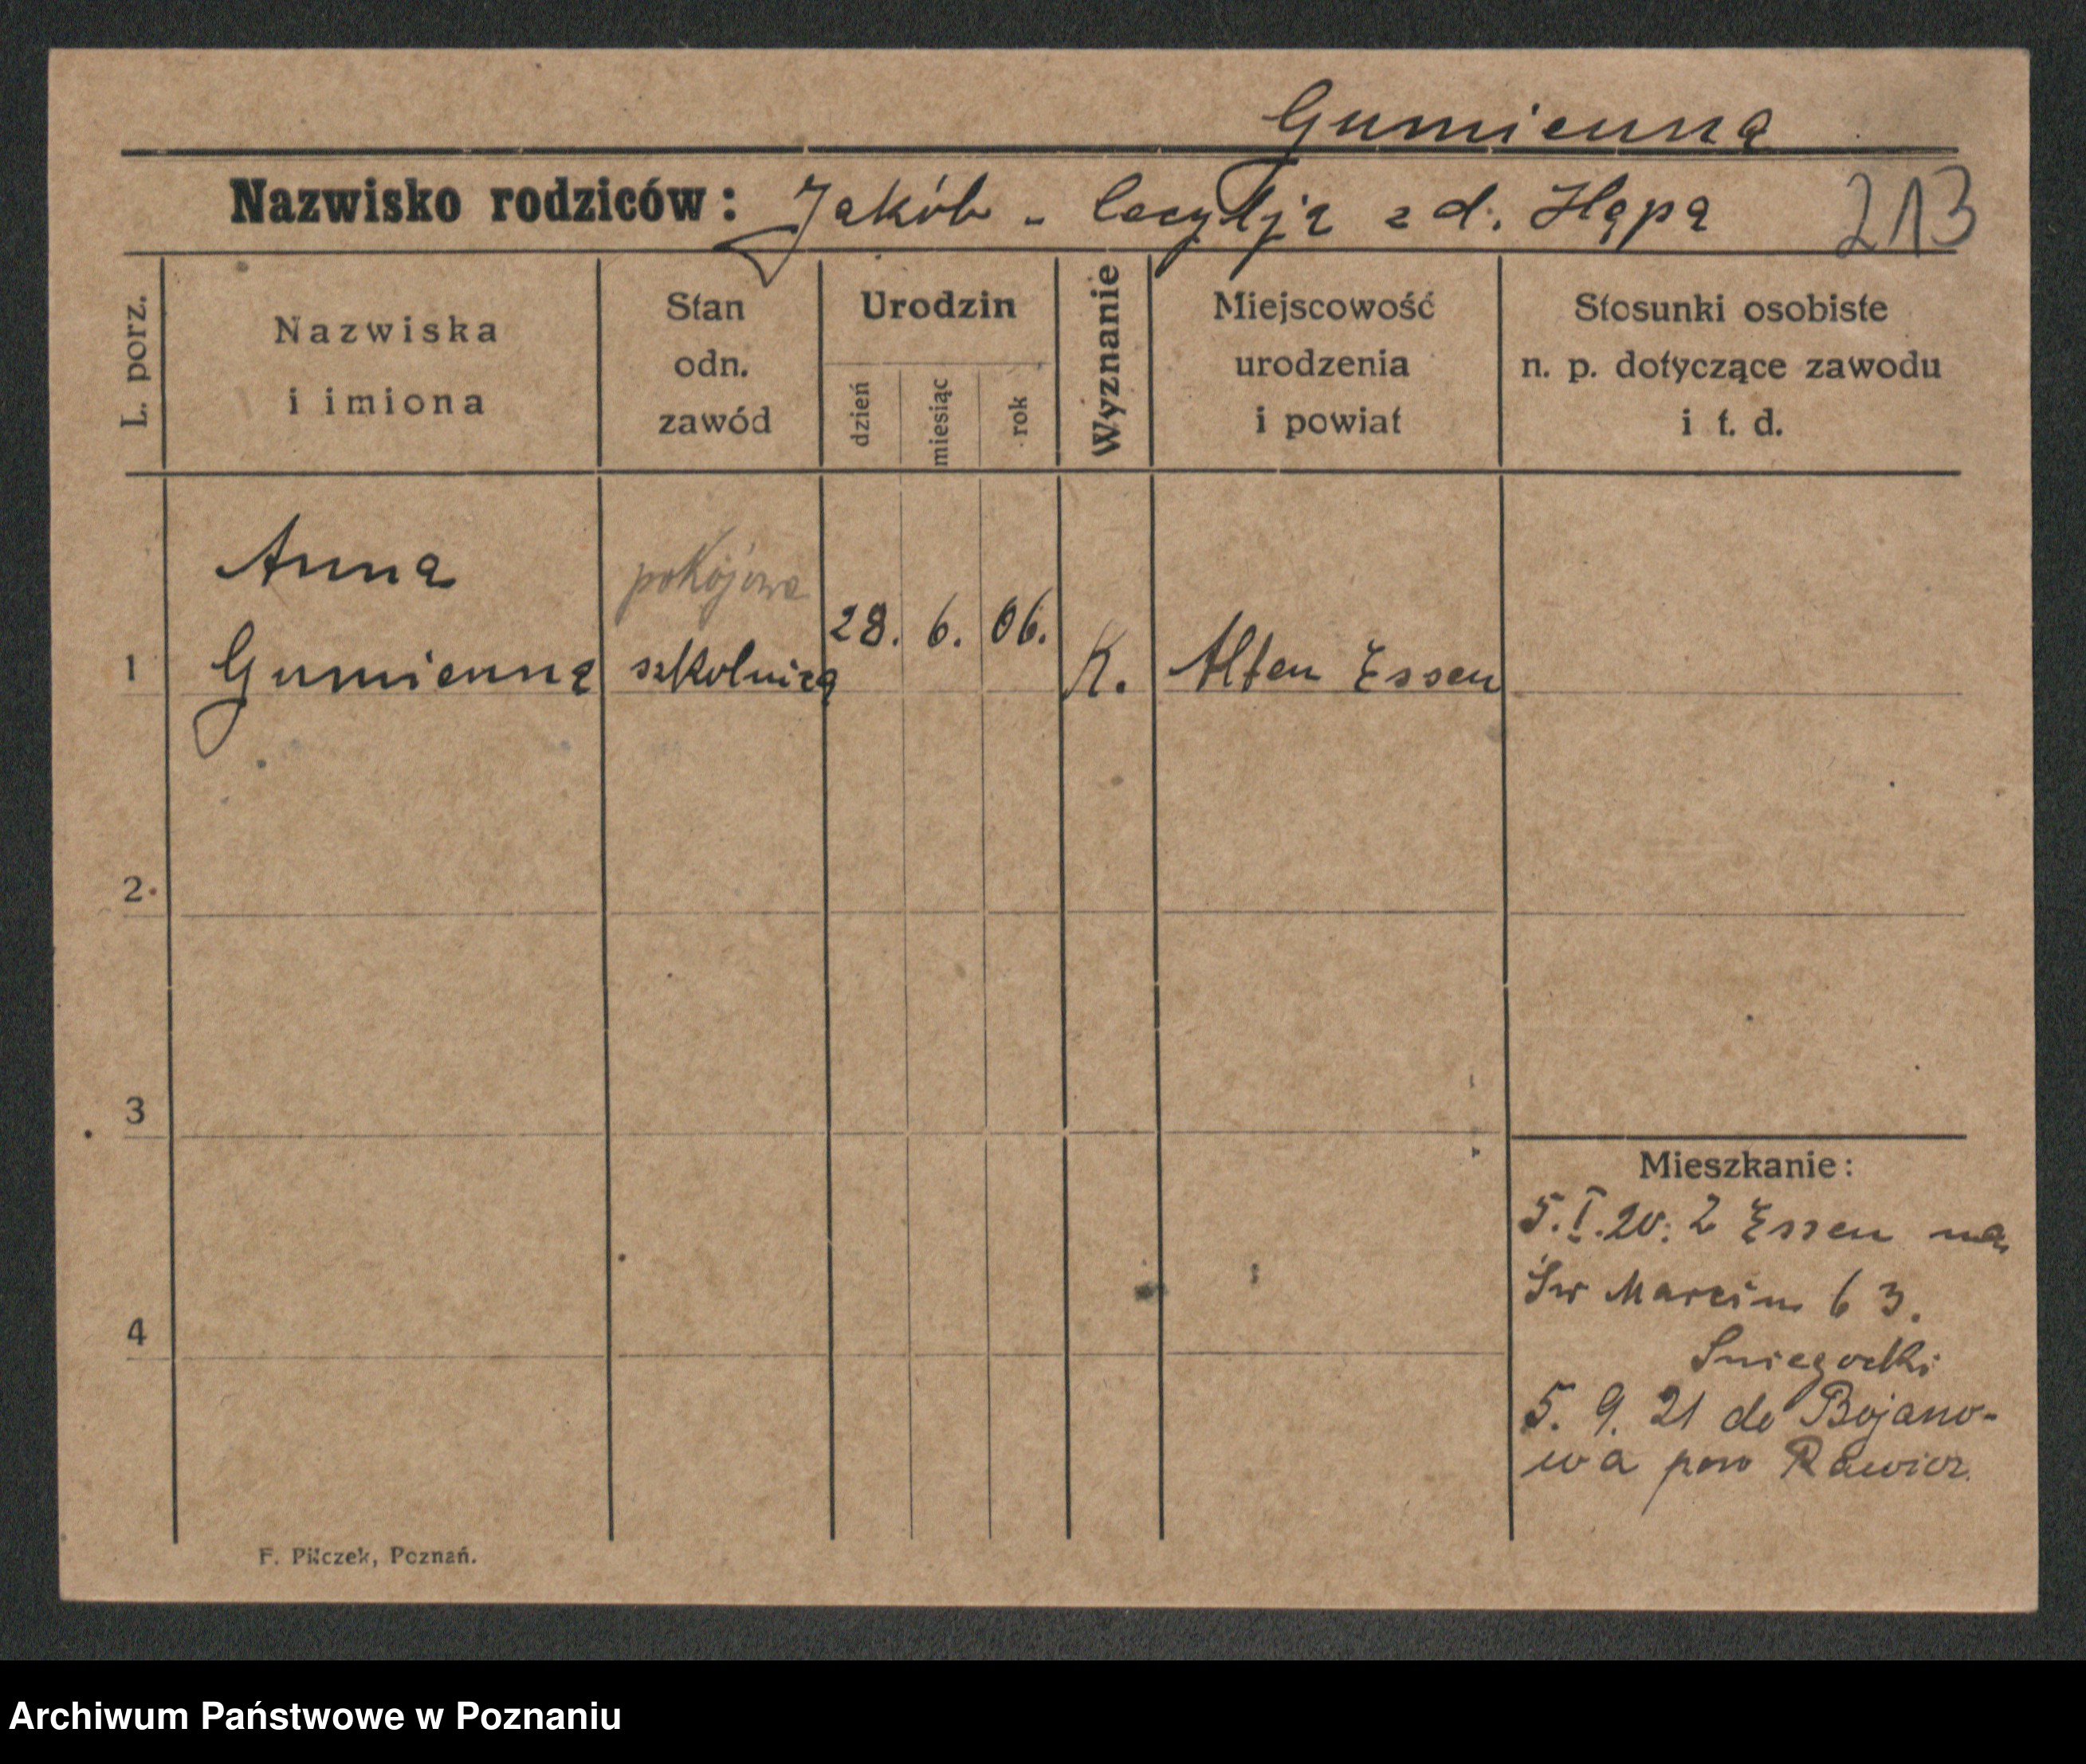 Gumienna
Nazwisko rodziców: Jakób - Cecylja z d. Hąpa 213
L. porz.
Nazwiska
i imiona
Stan
odn.
zawód
Urodzin
dzień
miesiąc
rok
Wyznanie
Miejscowość
urodzenia
i powiat
Stosunki osobiste
n. p. dotyczące zawodu
i t. d.
Anna pokojowa
1 Gumienna szkolnica 28. 6. 06. K. Alten Essen
2
3
Mieszkanie:
5.I.20. z Essen na
Św Marcin 63.
4
Sniegocki
5. 9. 21 do Bojano-
wa pow Rawicz.
F. Pilczek, Poznań.
Archiwum Państwowe w Poznaniu